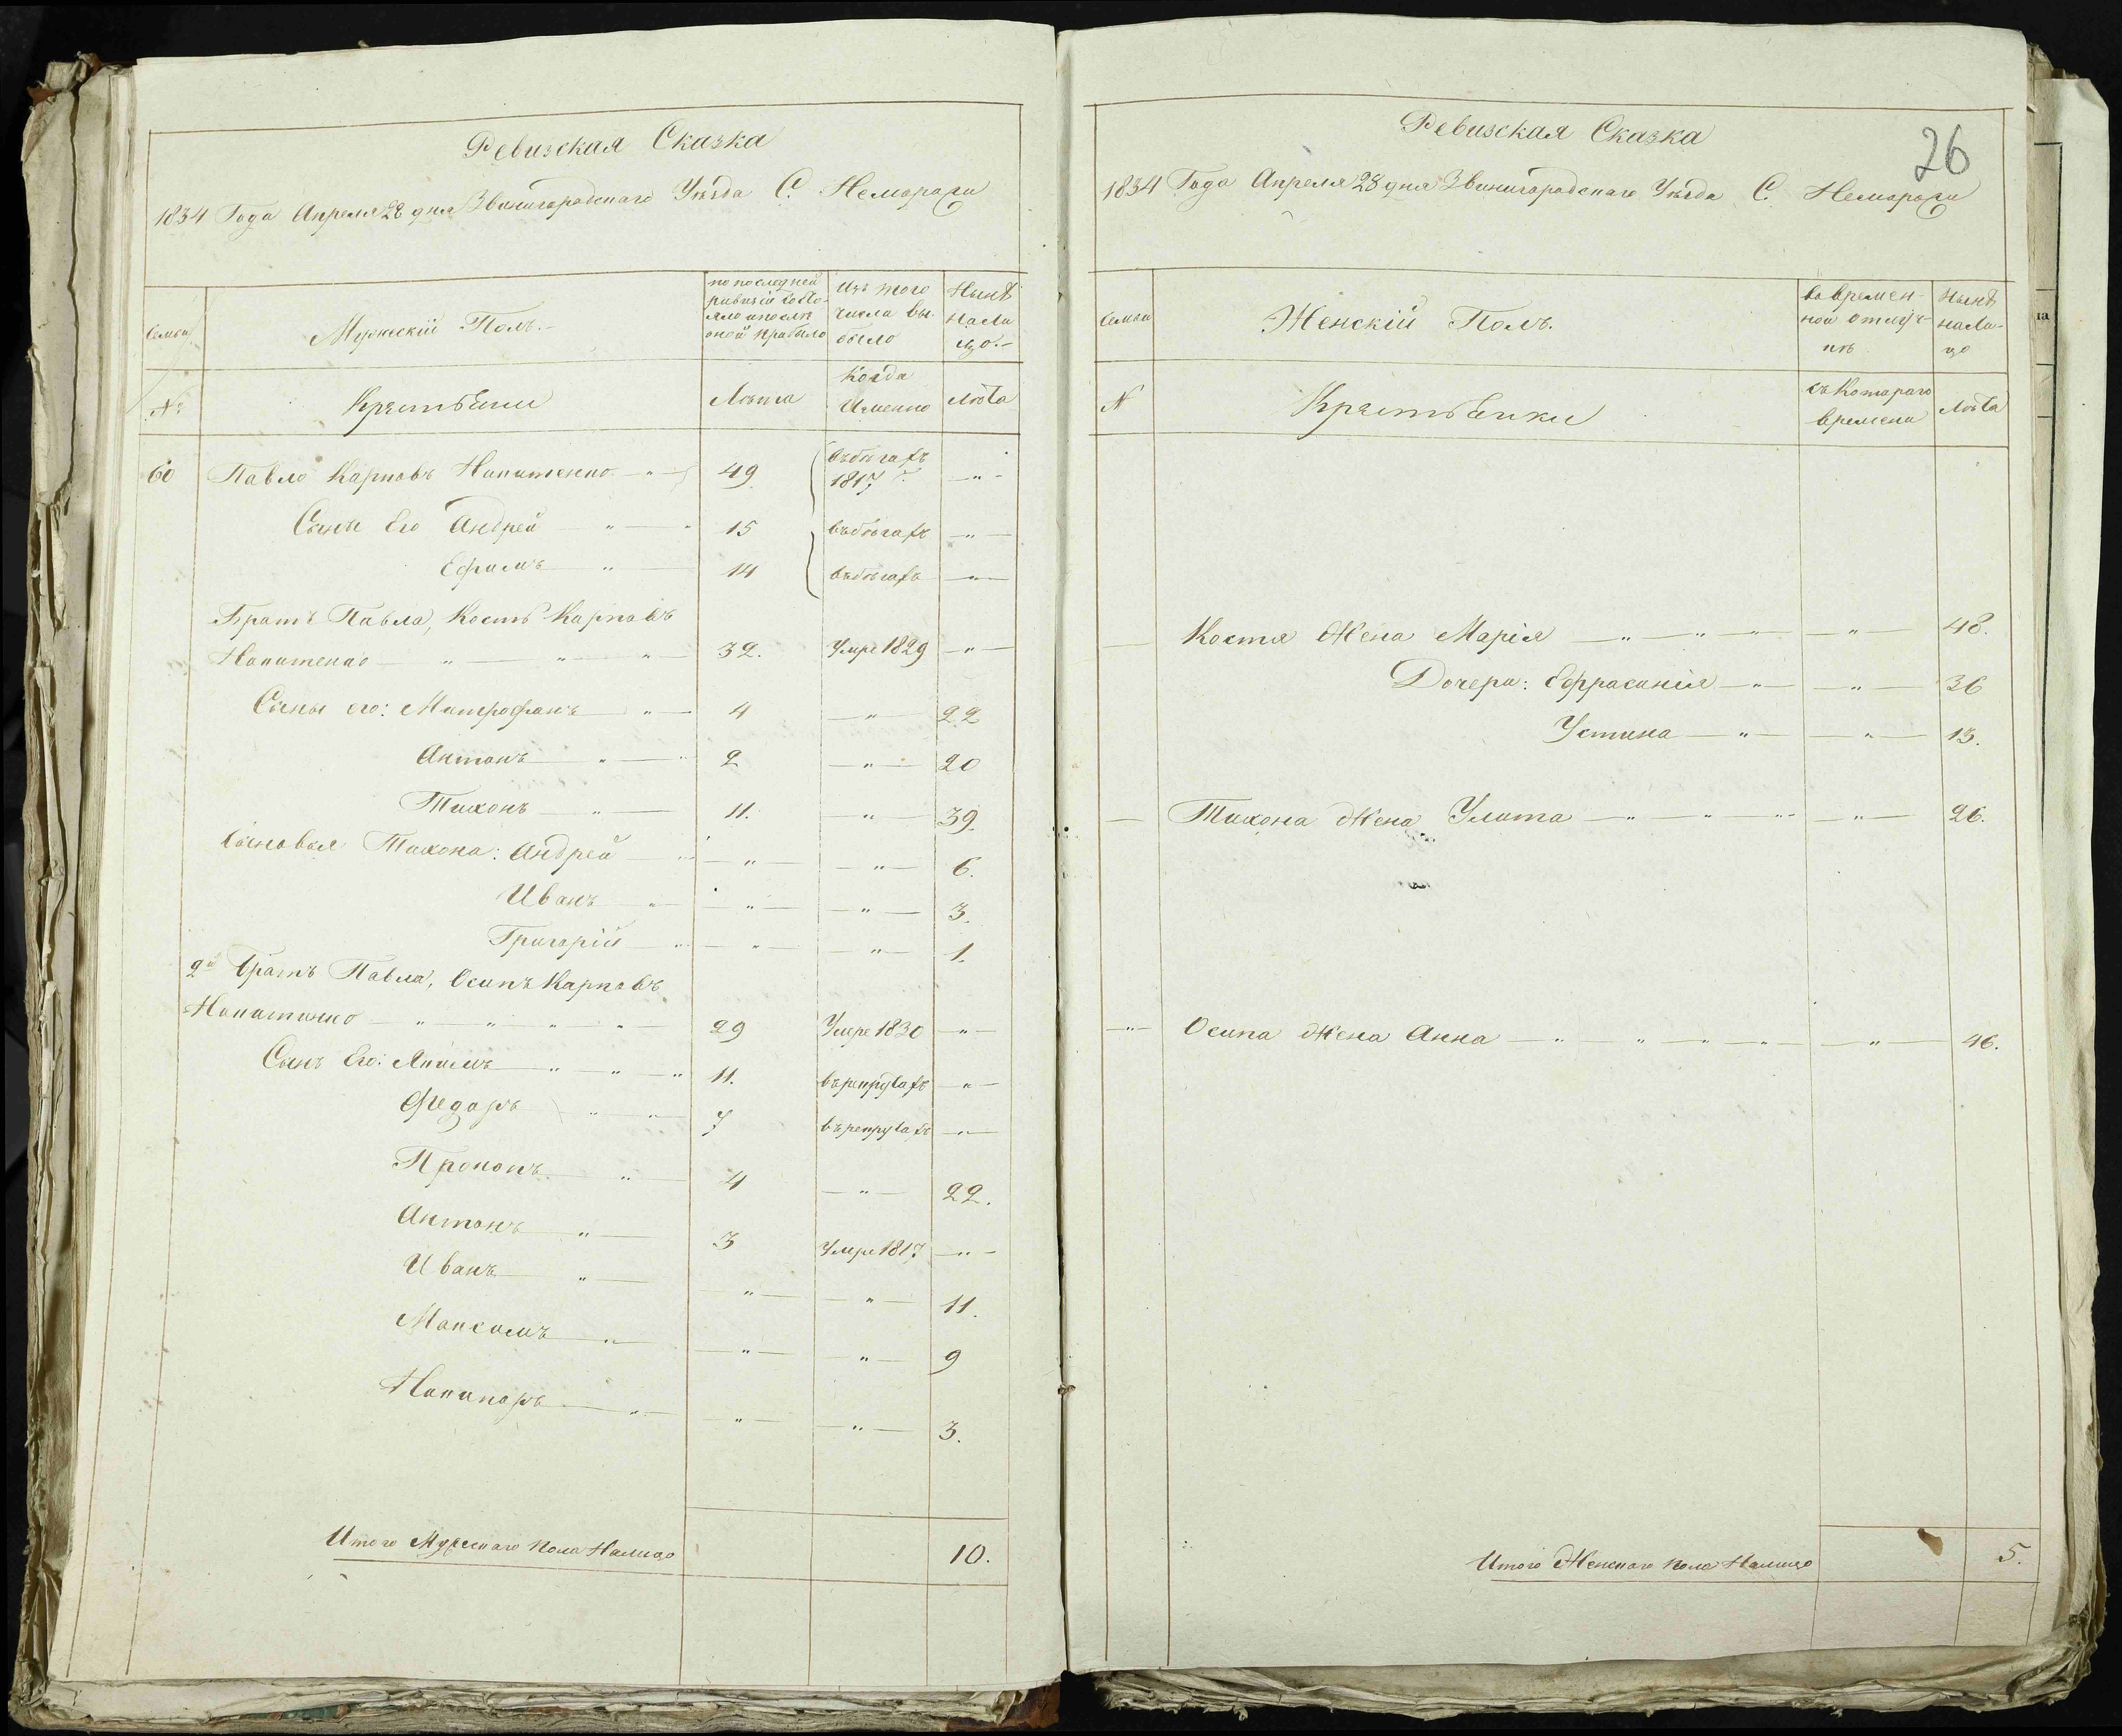 Ревизская Сказка
1834 Года Апреля 28 дня Звенигородскаго Уѣзда С. Неморожи
Семьи
Мужескій Полъ.
по последней ревизіи состояло и после оной прибыло
Изъ того числа выбыло
Нынѣ на лицо
№
Крестьяни
Лѣта
Когда Именно
Лѣта
60 Павло Карповъ Никитенко 49 въ бѣгахъ 1817
Сыны Его Андрей 15 въ бѣгахъ
Ефимъ 14 въ бѣгахъ
Братъ Павла, Кость Карповъ
Никитенко 32. Умре 1829
Сыны его: Митрофанъ 4 22
Антонъ 2 20
Тихонъ 11. 39.
Сыновья Тихона: Андрей 6.
Иванъ 3.
Григорій 1.
2й Братъ Павла, Осипъ Карповъ
Никитенко 29 Умре 1830
Сынъ Его: Якимъ 11. въ рекрутахъ
Федоръ 7 въ рекрутахъ
Прокопъ 4 22.
Антонъ 3 Умре 1817
Иванъ 11.
Максимъ 9
Никипоръ 3.
Итого Мужескаго пола Налицо 10.
26
Ревизская Сказка
1834 Года Апреля 28 дня Звенигородскаго Уѣзда С. Неморожи
Семьи
Женскій Полъ.
во временной отлучкѣ
Нынѣ на лицо
№
Крестьянки
съ котораго времени
Лѣта
Костя Жена Марія 48.
Дочери: Ефрасинія 36
Устина 13.
Тихона Жена Улита 26.
Осипа Жена Анна 46.
Итого Женскаго пола Налицо 5.